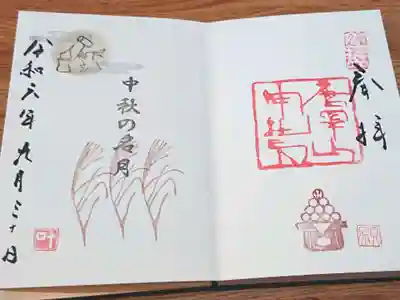 奉拝
唐澤山
神社
中秋の名月
令和六年九月三十日
叶